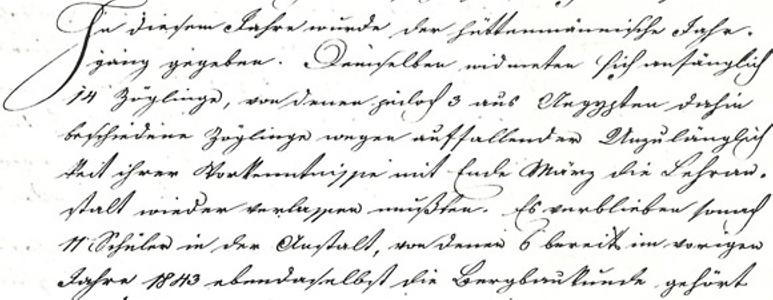 In diesem Jahre wurde der hüttenmännische Jahr-
gang gegeben. Demselben widmeten sich anfänglich
14 Zöglinge, von denen jedoch 3 aus Aegypten dahin
beschiedene Zöglinge wegen auffallender Unzulänglich
keit ihrer Vorkenntnisse mit Ende März die Lehran-
stalt wieder verlassen mußten. Es verblieben sonach
11 Schüler in der Anstalt, von denen 6 bereits im vorigen
Jahre 1843 ebendaselbst die Bergbaukunde gehört